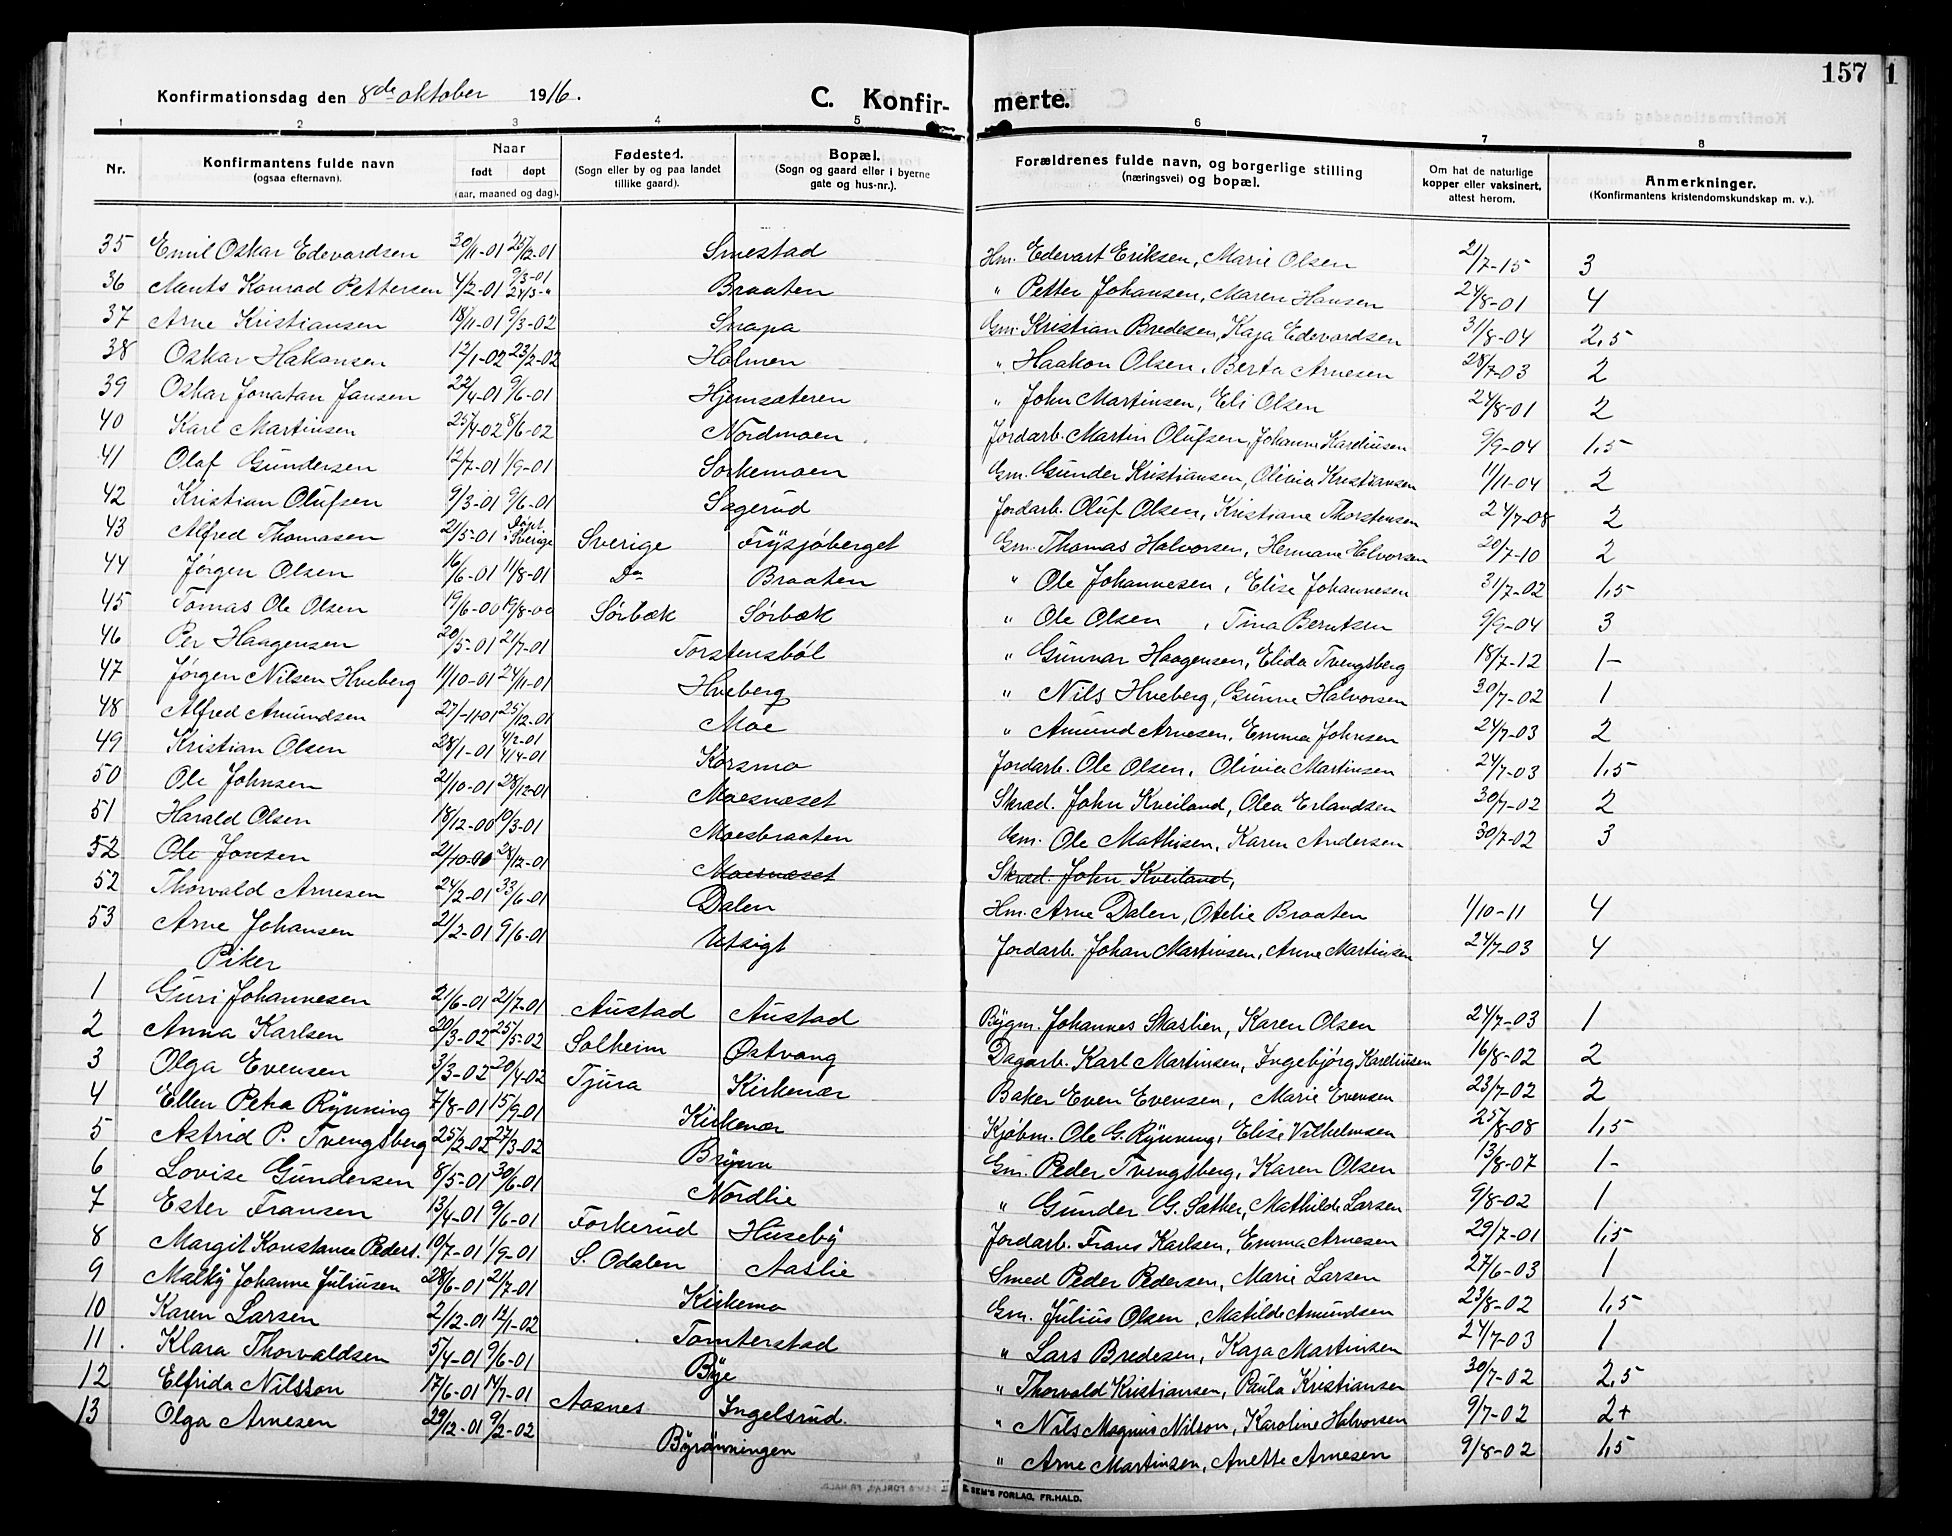 157 1
Konfirmationsdag den 8de oktober 1916. C. Konfir- merte.
1 2 3 4 5 6 7 8
Nr. Konfirmantens fulde navn (ogsaa efternavn). Naar født døpt (aar, maaned og dag). Fødested. (Sogn eller by og paa landet tillike gaard). Bopæl. (Sogn og gaard eller i byerne gate og hus-nr.). Forældrenes fulde navn, og borgerlige stilling (næringsvei) og bopæl. Om hat de naturlige kopper eller vaksinert, attest herom. Anmerkninger. (Konfirmantens kristendomskundskap m. v.).
35 Emil Oskar Edevardsen 30/11-01 25/2-01 Smestad Hm. Edevart Eriksen, Marie Olsen 21/7-15 3
36 Ments Konrad Pettersen 4/2-01 9/3-01 24/3-" Braaten " Petter Johansen, Maren Hansen 24/8-01 4
37 Arne Kristiansen 18/11-01 9/3-02 Snapa Gm. Kristian Bredesen, Kaja Edevardsen 31/8-04 2,5
38 Oskar Hakansen 12/1-02 23/2-02 Holmen " Haakon Olsen, Berta Arnesen 28/7-03 2
39 Oskar Jonatan Jansen 22/4-01 9/6-01 Hjemsæteren " John Martinsen, Eli Olsen 24/8-01 2
40 Karl Martinsen 25/4-02 8/6-02 Nordmoen Jordarb. Martin Olufsen, Johanne Kareliusen 9/9-04 1,5
41 Olaf Gundersen 12/7-01 1/9-01 Sorkemoen Gm. Gunder Kristiansen, Olivia Kristiansen 11/11-04 2
42 Kristian Olufsen 9/3-01 9/6-01 Sagerud Jordarb. Oluf Olsen, Kristiane Thorstensen 24/7-08 2
43 Alfred Thomasen 21/5-01 Døpt i Sverige Sverige Frysjøberget Gm. Thomas Halvorsen, Hermane Halvorsen 20/7-10 2
44 Jørgen Olsen 16/6-01 11/8-01 Do Braaten " Ole Johannesen, Elise Johannesen 31/7-02 1,5
45 Tomas Ole Olsen 19/6-00 19/8-00 Sørbæk Sørbæk " Ole Olsen, Tina Berntsen 9/9-04 3
46 Per Haagensen 20/5-01 21/7-01 Torstensbøl " Gunnar Haagensen, Elida Tvengsberg 18/7-12 1-
47 Jørgen Nilsen Hveberg 11/10-01 24/11-01 Hveberg " Nils Hveberg, Gunne Halvorsen 30/7-02 1
48 Alfred Amundsen 27/-11-01 25/12-01 Moe " Amund Arnesen, Emma Johnsen 24/7-03 2
49 Kristian Olsen 28/1-01 4/2-01 4/4-01 Korsmo Jordarb. Ole Olsen, Olivia Martinsen 24/7-03 1,5
50 Ole Johnsen 21/10-01 28/12-01 Moesnæset Skræd. John Kveiland, Olea Erlandsen 30/7-02 2
51 Harald Olsen 18/12-00 10/3-01 Moesbraaten Gm. Ole Mathisen, Karen Andersen 30/7-02 3
52 Ole Jonsen 21/10-00 28/12-01 Moesnæset Skræd. John Kveiland,
52 Thorvald Arnesen 24/2-01 33/6-01 Dalen Hm. Arne Dalen, Otelie Braaten 1/10-11 4
53 Arne Johansen 21/2-01 9/6-01 Utsigt Jordarb. Johan Martinsen, Anne Martinsen 24/7-03 4
Piker
1 Guri Johannesen 21/6-01 21/7-01 Austad Austad Bygm. Johannes Skaslien, Karen Olsen 24/7-03 1
2 Anna Karlsen 20/3-02 25/5-02 Solheim Østvang Dagarb. Karl Martinsen, Ingebjørg Kareliusen 16/8-02 2
3 Olga Evensen 3/3-02 20/4-02 Tjura Kirkenær Baker Even Evensen, Marie Evensen 23/7-02 2
4 Ellen Petra Rynning 7/8-01 15/9-01 Kirkenær Kjøbm. Ole G. Rynning, Elise Vilhelmsen 25/8-08 1,5
5 Astrid P. Tvengsberg 25/2-02 27/3-02 Bryern Gm. Peder Tvengsberg, Karen Olsen 13/8-07 1-
6 Lovise Gundersen 8/5-01 30/6-01 Nordlie " Gunder G. Sæther, Mathilde Larsen 9/8-02 1
7 Ester Fransen 13/4-01 9/6-01 Forkerud Huseby Jordarb. Frans Karlsen, Emma Arnesen 29/7-01 1,5
8 Margit Konstanse Peders. 10/7-01 1/9-01 S. Odalen Aaslie Smed Peder Pedersen, Marie Larsen 27/6-03 1
9 Malky Johanne Juliusen 28/6-01 21/7-01 Kirkemo Gm. Julius Olsen, Matilde Amundsen 23/8-02 1,5
10 Karen Larsen 2/12-01 12/1-02 Tomterstad " Lars Bredesen, Kaja Martinsen 24/7-03 1
11. Klara Thorvaldsen 5/4-01 9/6-01 Bye " Thorvald Kristiansen, Paula Kristiansen 30/7-02 2,5
12 Elfrida Nilsson 17/6-01 14/7-01 Aasnes Ingelsrud. " Nils Magnus Nilson, Karoline Halvorsen 9/7-02 2+
13 Olga Arnesen 29/12-01 9/2-02 Byrønningen " Arne Martinsen, Anette Arnesen 9/8-02 1,5
E. SEM'S FORLAG, FR.HALD.